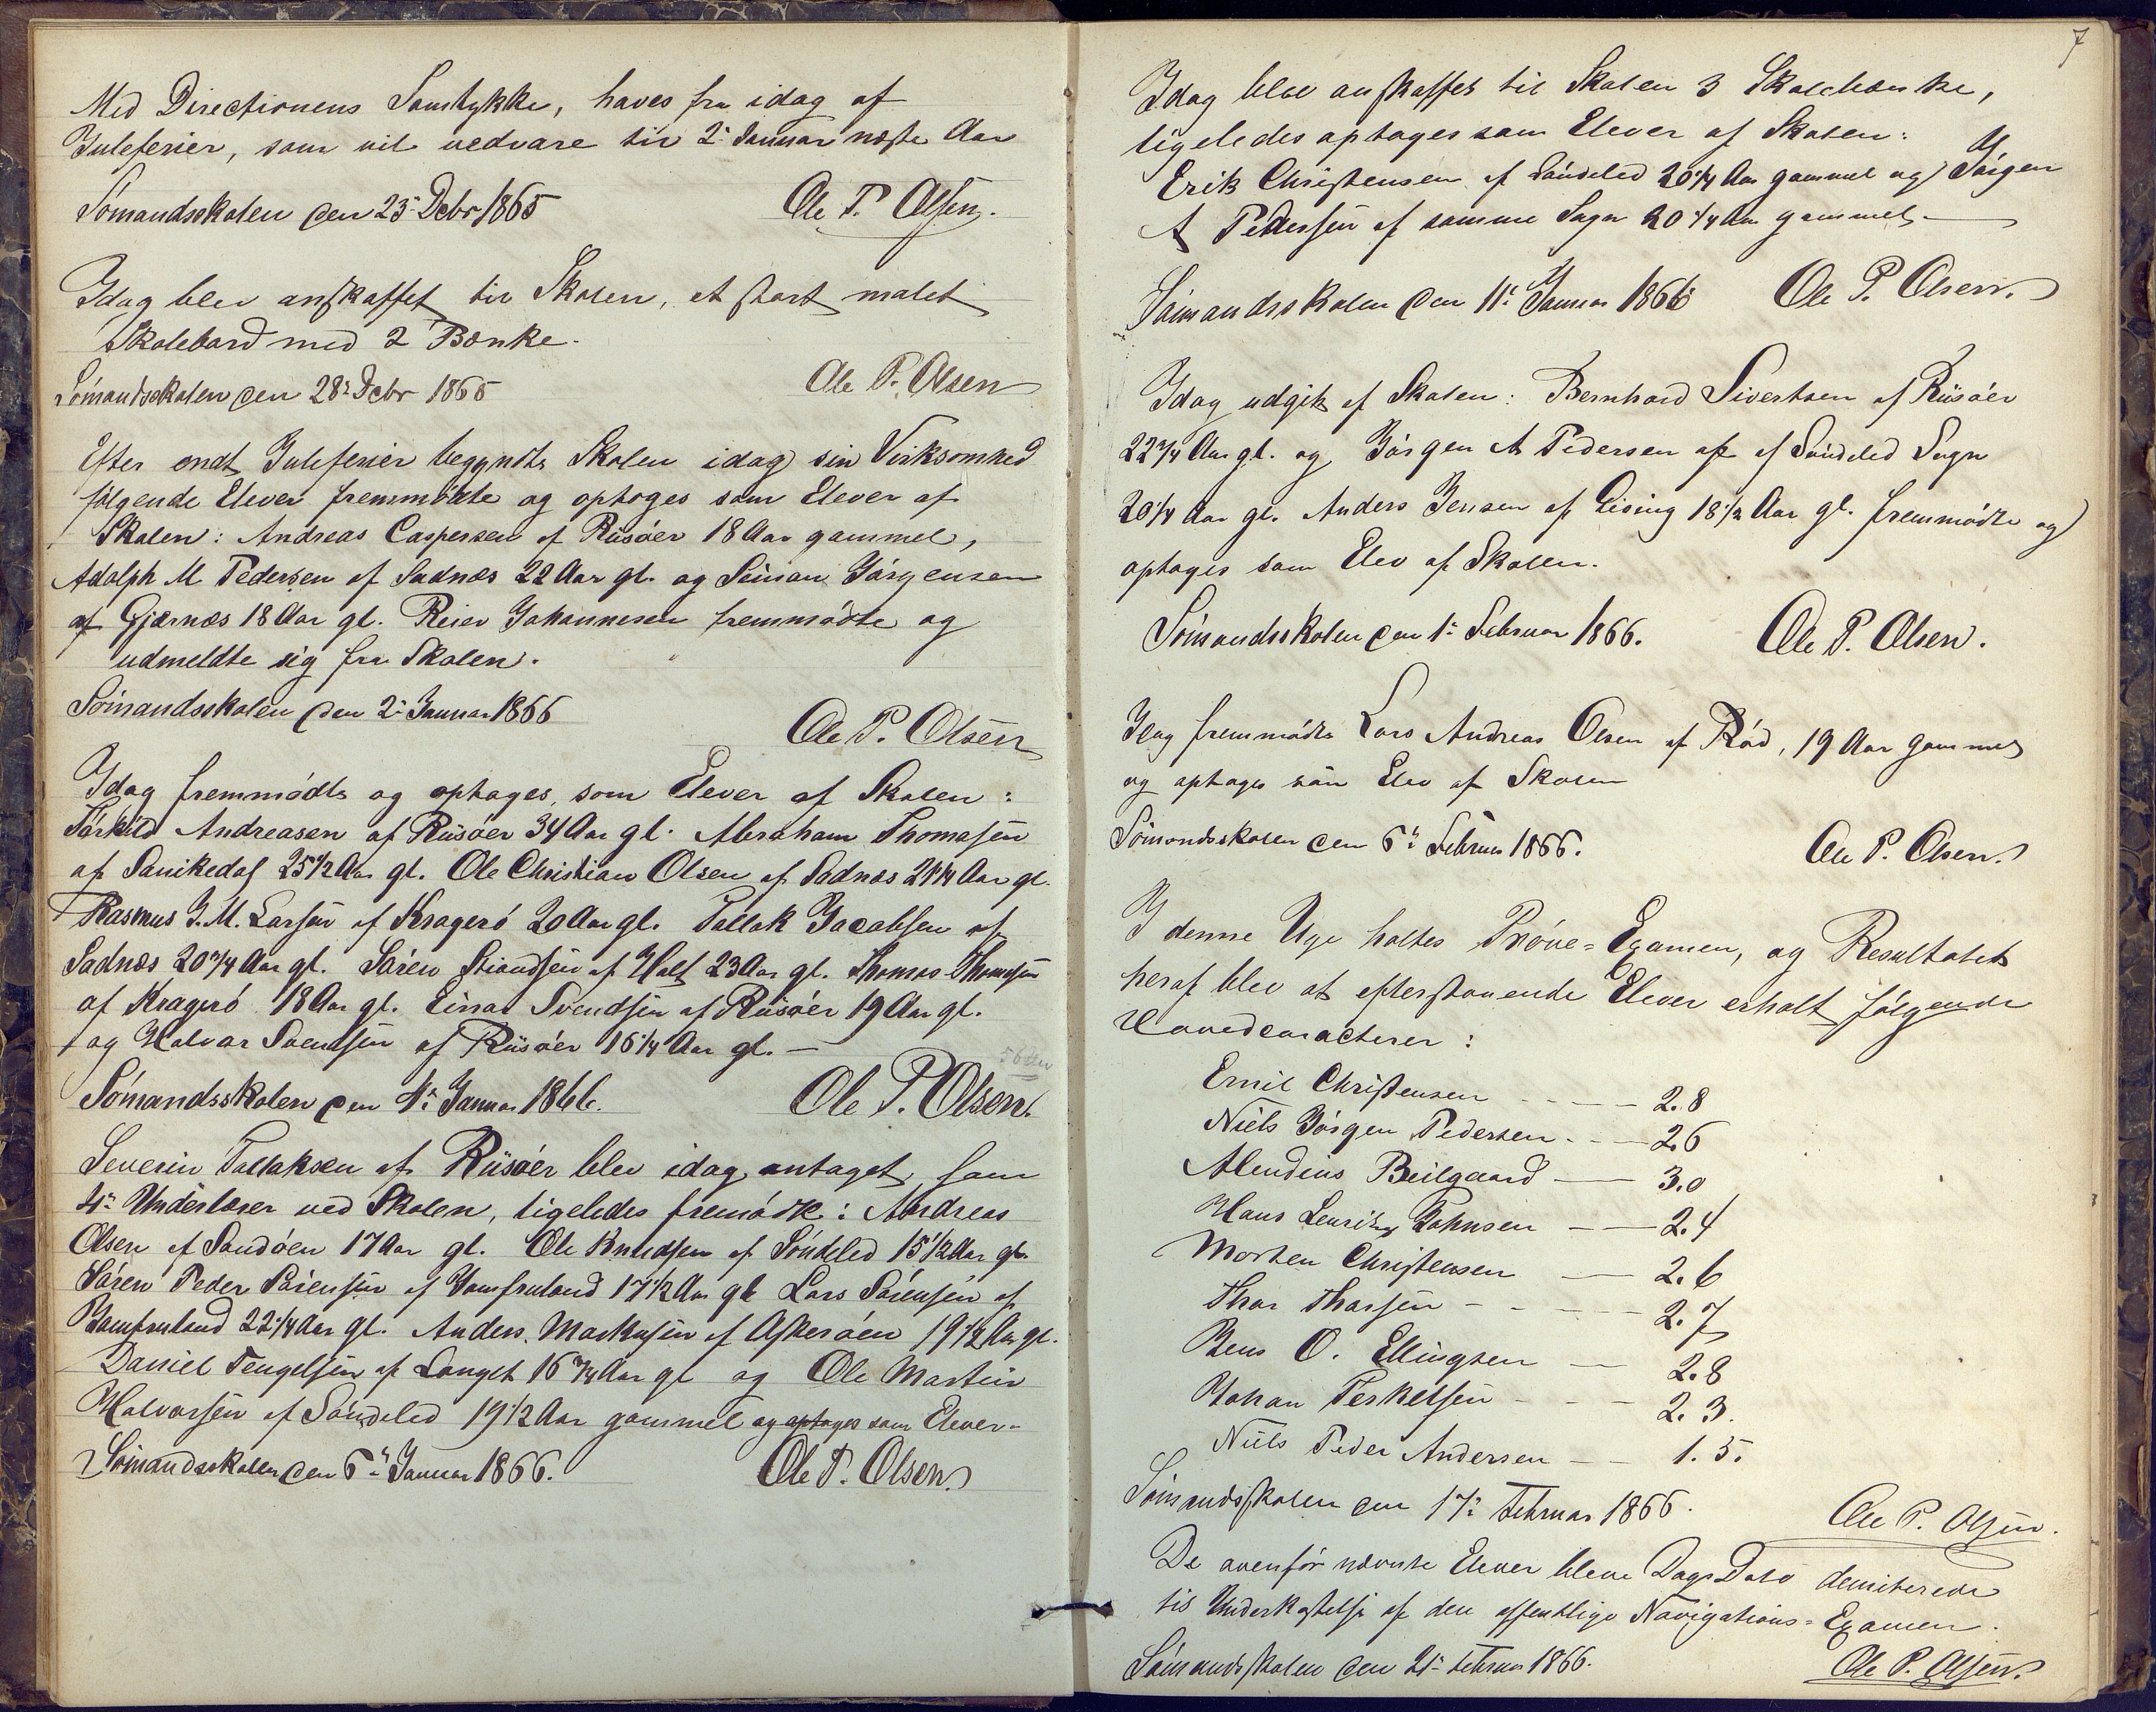 Med Directionens Samtykke, haves fra idag af
Juleferier, som vil vedvare til 2: Januar næste Aar
Sómandsskolen den 23: Debr 1865 Ole P. Olsen.
Idag blev anskaffet til Skolen, et stort malet
Skolebord med 2 Bænke.
Sómandsskolen den 28: Debr 1865 Ole P. Olsen
Efter endt Juleferier begyndte Skolen idag sin Virksomhed
følgende Elever fremmødte og optoges som Elever af
Skolen: Andreas Caspersen af Riisóer 18 Aar gammel,
Adolph M Pedersen af Sadnæs 22 Aar gl. og Simon Jórgensen
af Gjærnæs 18 Aar gl. Reier Johannesen fremmódte og
udmeldte sig fra Skolen.
Sómandsskolen den 2: Januar 1866
Ole P. Olsen
Idag fremmødte og optoges, som Elever af Skolen:
Tórkild Andreasen af Riisóer 34 Aar gl. Abraham Thomesen
af Sanikedal 25 1/2 Aar gl. Ole Christian Olsen af Sadnæs 21 1/4 Aar gl.
Rasmus J. M. Larsen af Krageró 20 Aar gl. Tallak Jacobsen af
Sadnæs 20 3/4 Aar gl. Sóren Stiandsen af Holt 23 Aar gl. Thomas Thomesen
af Krageró 18 Aar gl. Einar Svendsen af Riisóer 19 Aar gl.
og Halvor Svendsen af Riisóer 16 1/4 Aar gl. —
Sómandsskolen den 4: Januar 1866. Ole P. Olsen.
Severin Tallaksen af Riisóer blev idag antaget som
4: Underlærer ved Skolen, ligeledes fremódte: Andreas
Olsen af Sandóen 17 Aar gl. Ole Knudsen af Sóndeled 15 1/2 Aar gl.
Sóren Peder Sórensen af Jomfruland 17 1/2 Aar gl Lars Sórensen af
Jomfruland 22 1/4 Aar gl. Anders Markusen af Askeróen 19 1/2 Aar gl.
Daniel Tengelsen af Langet 16 3/4 Aar gl og Ole Martin
Halvorsen af Sóndeled 19 1/2 Aar gammel og optoges som Elever.
Sómandsskolen den 6: Januar 1866. Ole P. Olsen.
7
Idag blev anskaffet til Skolen 3 Skolebænke,
ligeledes optoges som Elever af Skolen:
Erik Christensen af Sóndeled 20 1/4 Aar gammel og Jórgen
A Pedersen af samme Sogn 20 1/4 Aar gammel.
Sómandsskolen den 11: Januar 1866 Ole P. Olsen.
Idag udgik af Skolen: Bernhard Sivertsen af Riisóer
22 3/4 Aar gl. og Jórgen A Pedersen af af Sóndeled Sogn
20 1/4 Aar gl. Anders Jensen af Gising 18 1/2 Aar gl. fremmódte og
optoges som Elev af Skolen.
Sómandsskolen den 1: Februar 1866. Ole P. Olsen.
Idag fremmódte Lars Andreas Olsen af Ród, 19 Aar gammel
og optoges som Elev af Skolen
Sómandsskolen den 6: Februar 1866. Ole P. Olsen.
I denne Uge holtes Próve=Examen, og Resultatet
heraf blev at efterstaaende Elever erholt fólgende
Hovedcaracterer:
Emil Christensen - - - 2.8
Niels Jórgen Pedersen - - 2.6
Abendius Beilgaard — 3.0
Hans Lauritz Johnsen — 2.4
Morten Christensen — 2.6
Thor Thorsen - - - 2.7
Jens O. Ellingsen — 2.8
Johan Terkelsen - - - 2.3.
Niels Peder Andersen — 1.5.
Sómandsskolen den 17: Februar 1866. Ole P. Olsen.
De ovenfór nævnte Elever bleve Dags Dato demiterede
til Underkastelse af den offentlige Navigations=Examen.
Sómandsskolen den 21: Februar 1866. Ole P. Olsen.